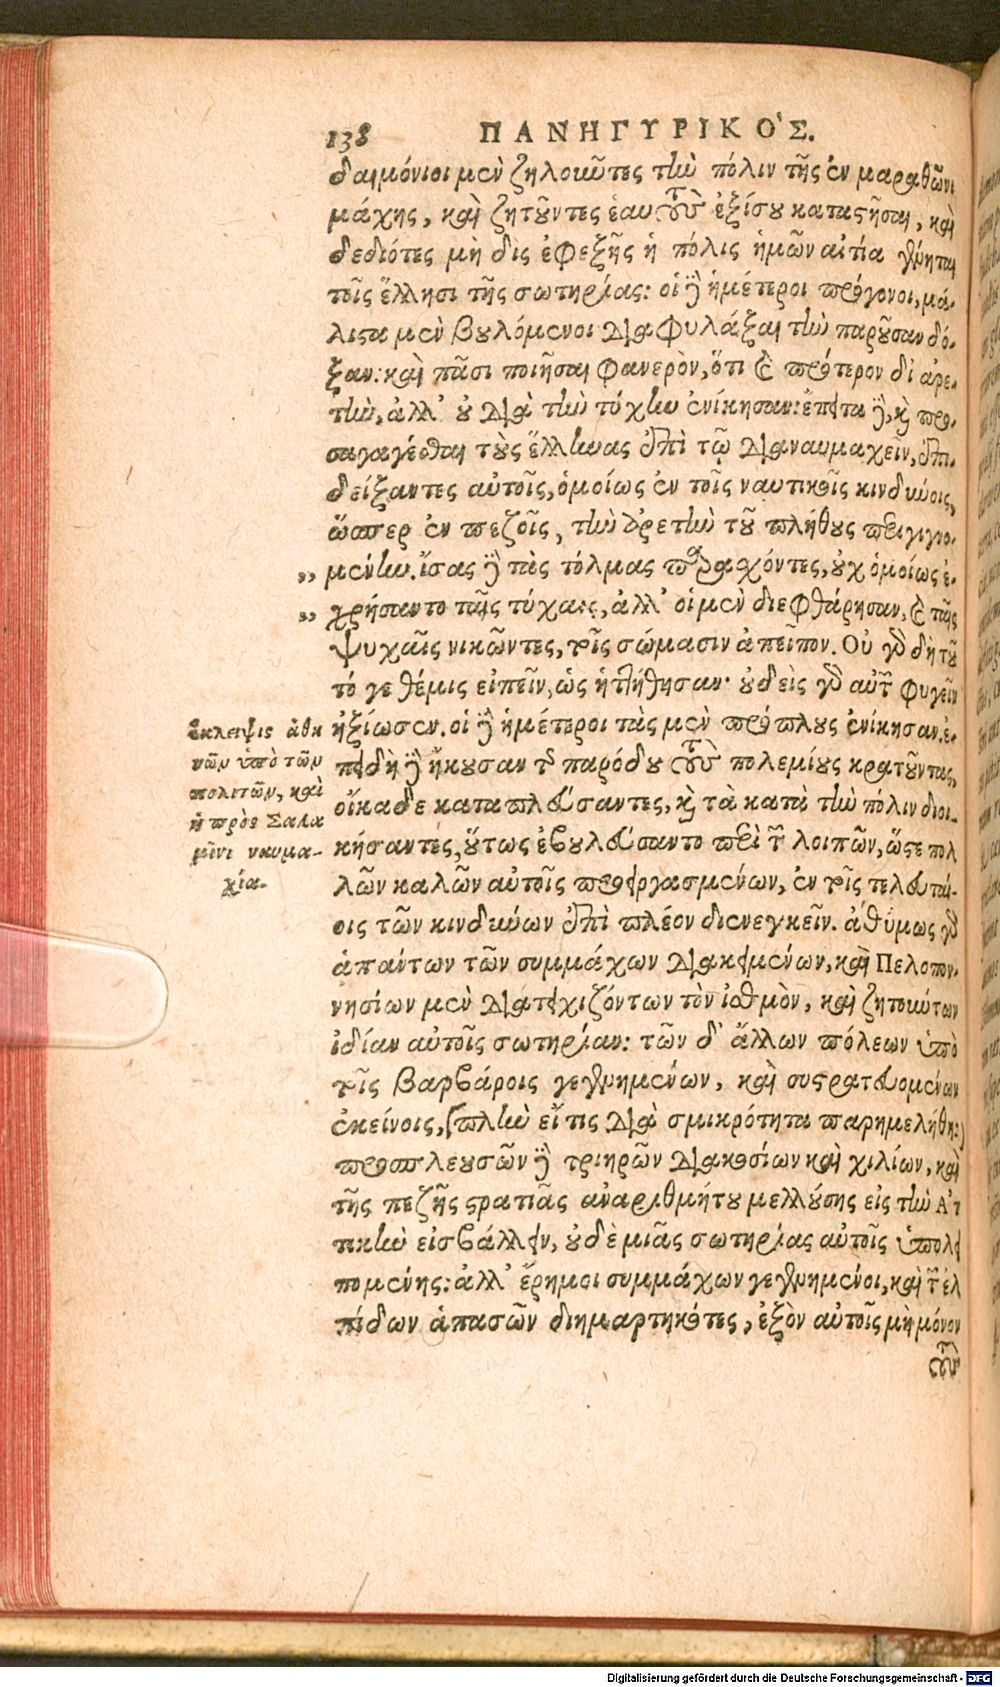 138 ΠΑΝΗΓΥΡΙΚΟ'Σ.
δαιμόνιοι μὲν ζηλοῦντες τὴν πόλιν τῆς ἐν μαραθῶνι
μάχης, καὶ ζητοῦντες ἑαυτοὺς ἐξίσου καταστῆσαι, καὶ
δεδιότες μὴ δὶς ἐφεξῆς ἡ πόλις ἡμῶν αἰτία γένηται
τοῖς ἕλλησι τῆς σωτηρίας: οἱ δὲ ἡμέτεροι πρόγονοι, μά-
λιστα μὲν βουλόμενοι διαφυλάξαι τὴν παροῦσαν δό-
ξαν: καὶ πᾶσι ποιῆσαι φανερὸν, ὅτι καὶ πρότερον δι' ἀρε-
τὴν, ἀλλ' οὐ διὰ τὴν τύχην ἐνίκησαν: ἔπειτα δὲ, καὶ προ-
σαγαγέσθαι τοὺς ἕλληνας ἐπὶ τῷ διαναυμαχεῖν, ἐπι-
δείξαντες αὐτοῖς, ὁμοίως ἐν τοῖς ναυτικοῖς κινδύνοις,
ὥσπερ ἐν πεζοῖς, τὴν ἀρετὴν τοῦ πλήθους περιγιγνο-
„ μένην. ἴσας δὲ τὰς τόλμας παρασχόντες, οὐχ ὁμοίως ἐ-
„ χρήσαντο ταῖς τύχαις, ἀλλ' οἱ μὲν διεφθάρησαν, καὶ ταῖς
ψυχαῖς νικῶντες, τοῖς σώμασιν ἀπεῖπον. Οὐ γὰρ δὴ τοῦ
τό γε θέμις εἰπεῖν, ὡς ἡττήθησαν· οὐδεὶς γὰρ αὐτῶν φυγεῖν
ἠξίωσεν. οἱ δὲ ἡμέτεροι τὰς μὲν πρόπλους ἐνίκησαν. ἐ-
πειδὴ δὲ ἤκουσαν τῆς παρόδου τοὺς πολεμίους κρατοῦντας,
οἴκαδε καταπλεύσαντες, καὶ τὰ κατὰ τὴν πόλιν διοι-
κήσαντες, οὕτως ἐβουλεύσαντο περὶ τῶν λοιπῶν, ὥστε πολ
λῶν καλῶν αὐτοῖς προειργασμένων, ἐν τοῖς τελευταί-
οις τῶν κινδύνων ἐπὶ πλέον διενεγκεῖν. ἀθύμως γὰρ
ἁπάντων τῶν συμμάχων διακειμένων, καὶ Πελοπον-
νησίων μὲν διατειχιζόντων τὸν ἰσθμὸν, καὶ ζητούντων
ἰδίαν αὐτοῖς σωτηρίαν: τῶν δ' ἄλλων πόλεων ὑπὸ
τοῖς βαρβάροις γεγενημένων, καὶ συστρατευομένων
ἐκείνοις, (πλὴν εἴ τις διὰ σμικρότητα παρημελήθη:)
προσπλευσῶν δὲ τριηρῶν διακοσίων καὶ χιλίων, καὶ
τῆς πεζῆς στρατιᾶς ἀναριθμήτου μελλούσης εἰς τὴν Ἀτ
τικὴν εἰσβάλλειν, οὐδὲ μιᾶς σωτηρίας αὐτοῖς ὑπολει
πομένης: ἀλλ' ἔρημοι συμμάχων γεγενημένοι, καὶ τῶν ἐλ
πίδων ἁπασῶν διημαρτηκότες, ἐξὸν αὐτοῖς μὴ μόνον
τοὺς
ἔκλειψις ἀθη
νῶν ὑπὸ τῶν
πολιτῶν, καὶ
ἡ πρὸς Σαλα
μῖνι ναυμα-
χία.
Digitalisierung gefördert durch die Deutsche Forschungsgemeinschaft - DFG